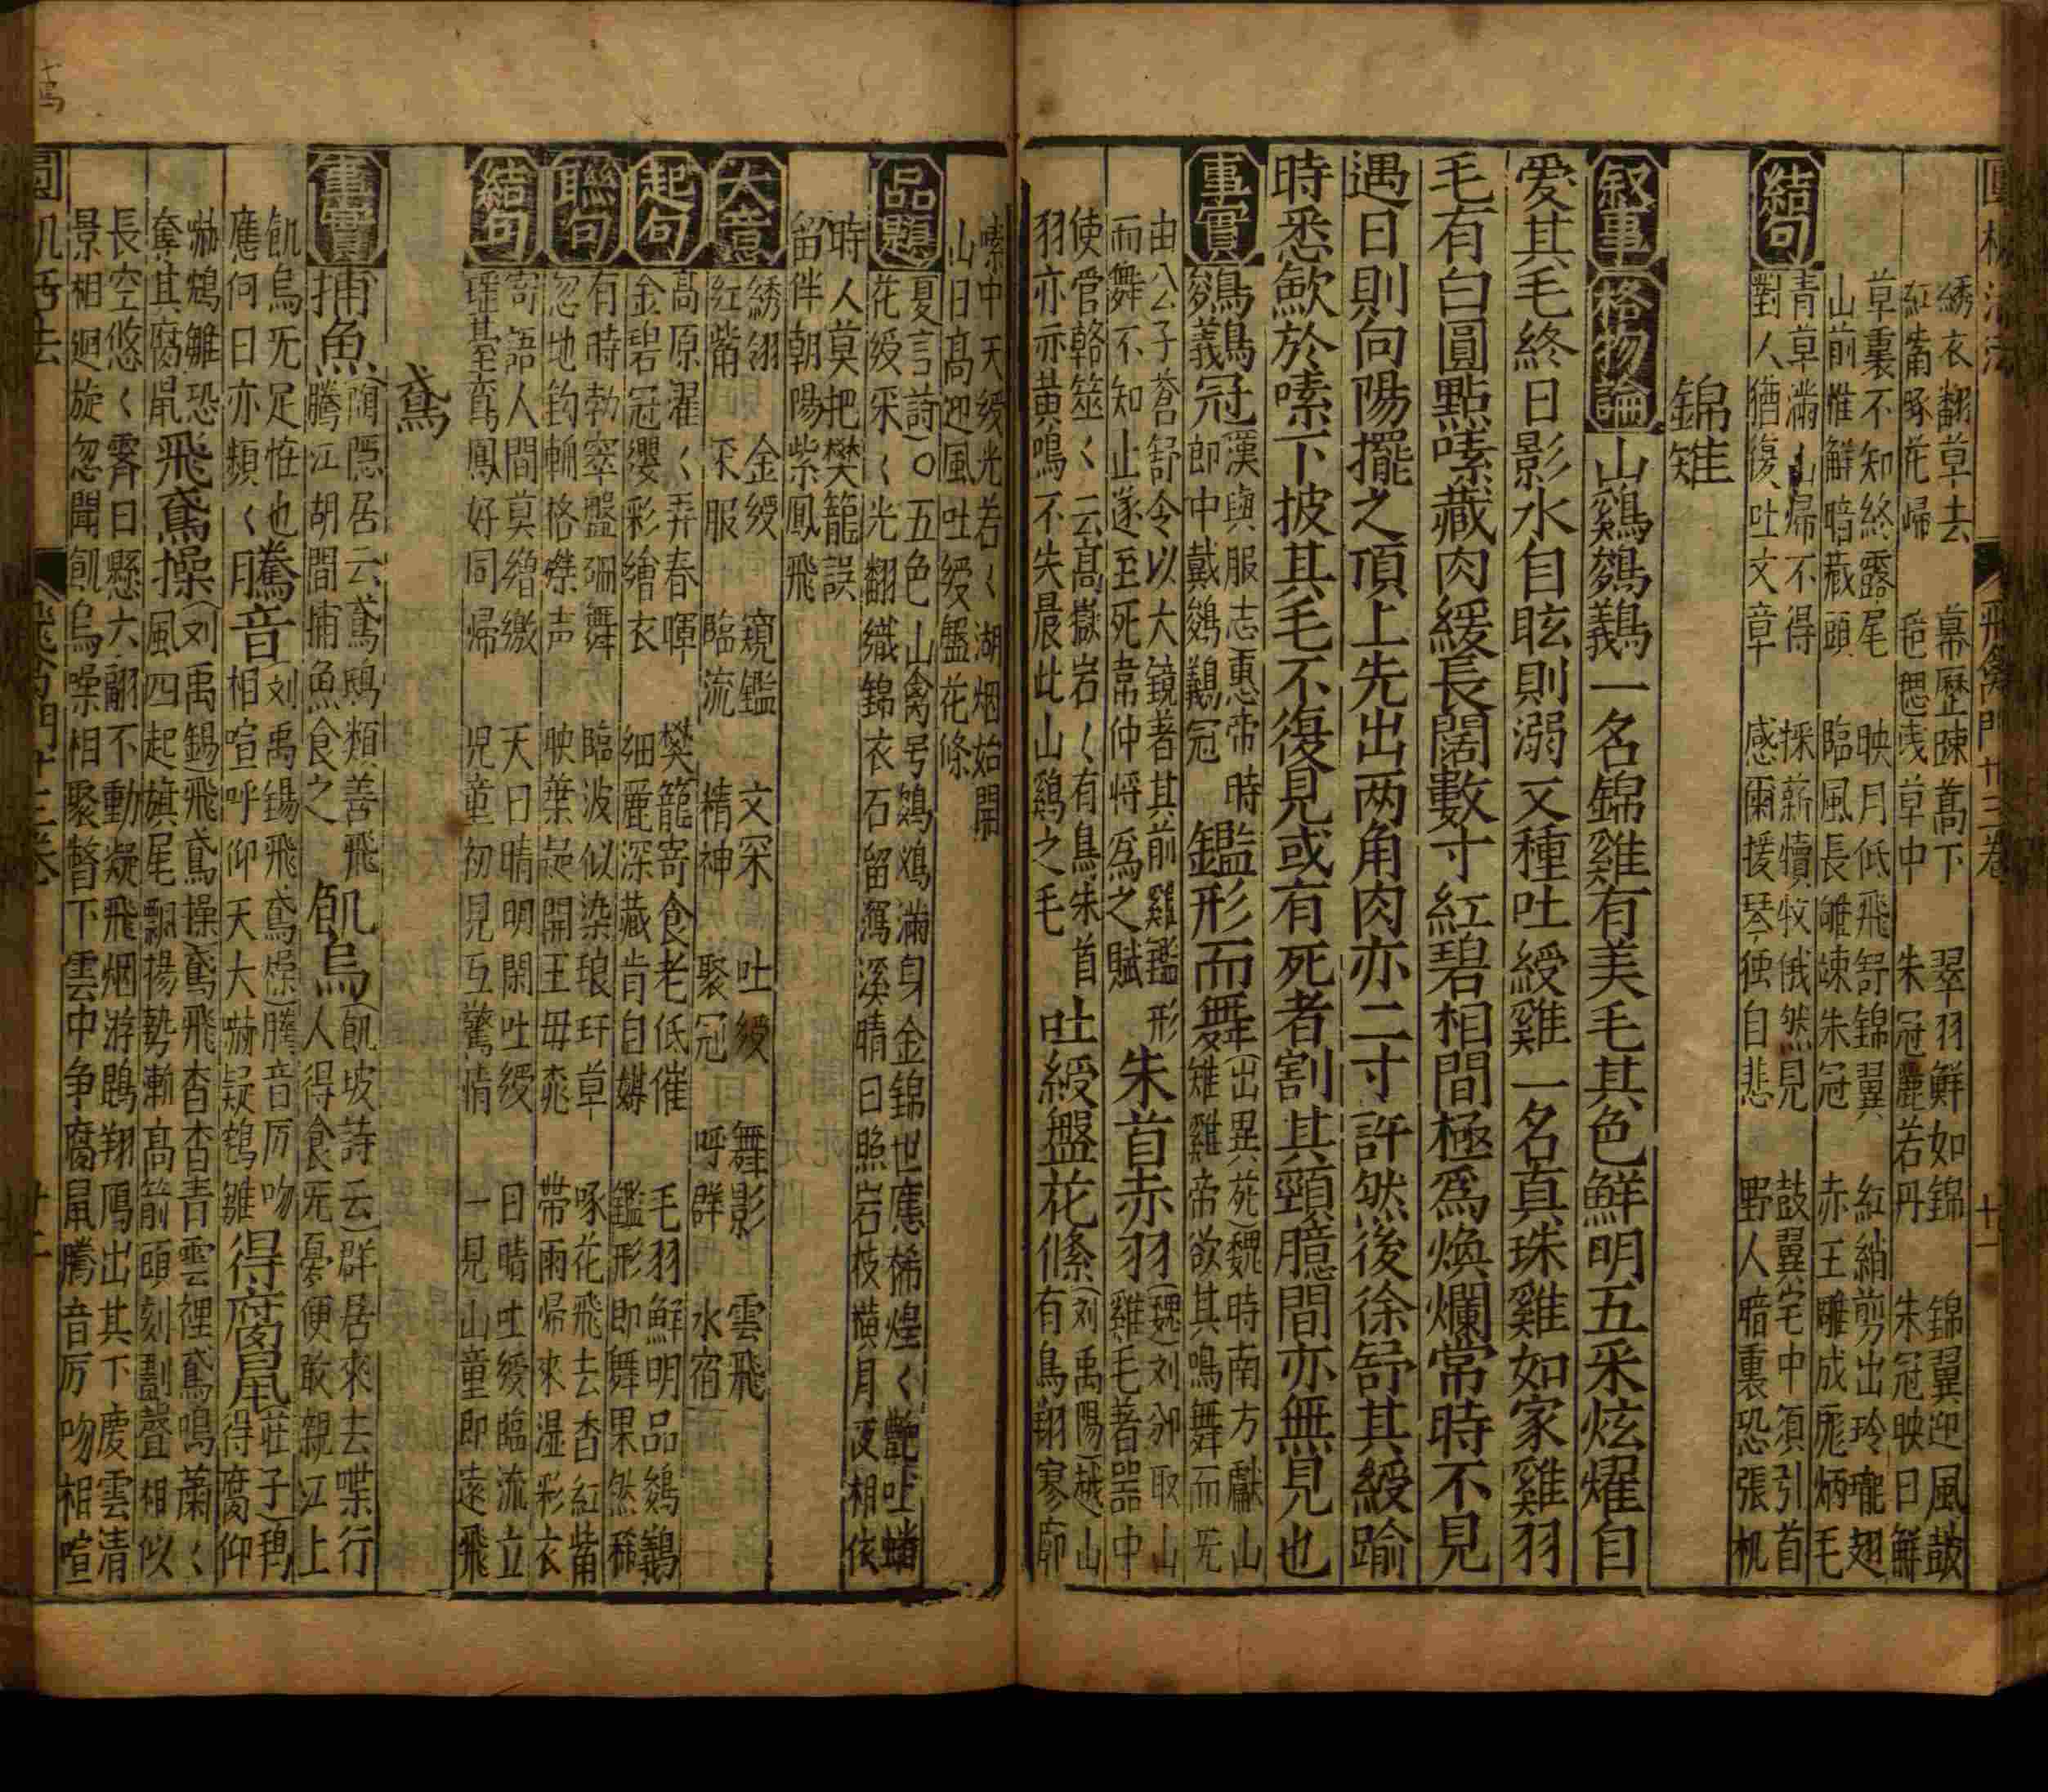 繡衣翻草去 幕歷疎蒿下 翠羽鮮如錦 錦翼迎風皷
紅觜啄花歸 草中 朱冠麗若丹 朱冠映日鮮
草裏不知終露尾 映月低飛舒錦翼 紅綃剪出玲瓏翅
山前惟解暗藏頭 臨風長雊竦朱冠 赤玉雕成彪炳毛
結句
青草滿山歸不得 採薪犢牧俄然見 鼓翼宅中須引首
對人猶復吐文章 感爾援琴独自悲 野人暗裏恐張机
錦雉
叙事 格物論 山鷄鵔鸃一名錦雞有美毛其色鮮明五采炫燿自
愛其毛終日影水自眩則溺又種吐綬雞一名真珠雞如家雞羽
毛有白圓點嗉藏肉緩長闊數寸紅碧相間極爲煥爛常時不見
遇日則向陽擺之頂上先出两角肉亦二寸許然後徐舒其綬踰
時悉歛於嗉下披其毛不復見或有死者割其頸臆間亦無見也
事實
鵔鸃冠
漢輿服志惠帝時
郎中戴鵔鸃冠
鑑形而舞
(出異苑)魏時南方獻山
雉雞帝欲其鳴舞而旡
由公子蒼舒令以大鏡著其前雞鑑形
而舞不知止遂至死韋仲将爲之賦
朱首赤羽
(魏)刘卲取山
雞毛著器中
使管輅筮く云高嶽岩く有鳥朱首
羽亦赤黄鳴不失晨此山鷄之毛
吐綬盤花絛
(刘禹陽)越山
有鳥翔寥廓
嗉中天綬光若く湖烟始開
山日高迎風吐綬盤花絛
品題
夏言詩)○五色山禽号鵔鸃滿身金錦世應稀煌く艶吐蟠
花綬采く光翻織錦衣石留鴛溪晴日照岩枝横月夜相依
時人莫把樊籠誤
留伴朝陽紫鳳飛
大意
綉翎 金綬 窺鑑 文采 吐綬 舞影 雲飛
紅觜 采服 臨流 精神 聚冠 呼群 水宿
起句
高原濯く弄春暉 樊籠寄食老低催 毛羽鮮明品鵔鸃
金碧冠纓彩繪衣 細麗深藏肯自媒 鑑形即舞果然稀
聯句
有時勃窣盤珊舞 臨波似染琅玕草 啄花飛去杳紅觜
忽地鈎輈格磔声 映葉疑開王母桃 帶雨帰來湿彩衣
結句
寄語人間莫繒繳 天日晴明閑吐綬 日晴吐綬臨流立
瑶臺鸞鳳好同帰 児童初見互驚情 一見山童即遠飛
鳶
事實
捕魚
隠居云鳶鴟類善飛
騰江胡間捕魚食之
飢烏
(飢坡詩云)群居來去喋行
人得食旡憂便敢親江上
飢烏旡足恠也
應何日亦類く
騰音
(刘禹錫飛鳶操)騰音厉吻
相喧呼仰天大嚇疑鵷雛
得腐鼠
(莊子)鵄
得腐仰
嚇鵷雛恐
奪其腐鼠
飛鳶操
(刘禹錫飛鳶操)鳶飛杳杳青雲裡鳶鳴蕭く
風四起旗尾飄揚勢漸高箭頭刻劃聲相似
長空悠く霽日懸六翮不動凝飛烟游鵾翔鴈出其下慶雲清
景相迴旋忽聞飢烏噪相聚瞥下雲中争腐鼠騰音厉吻相喧